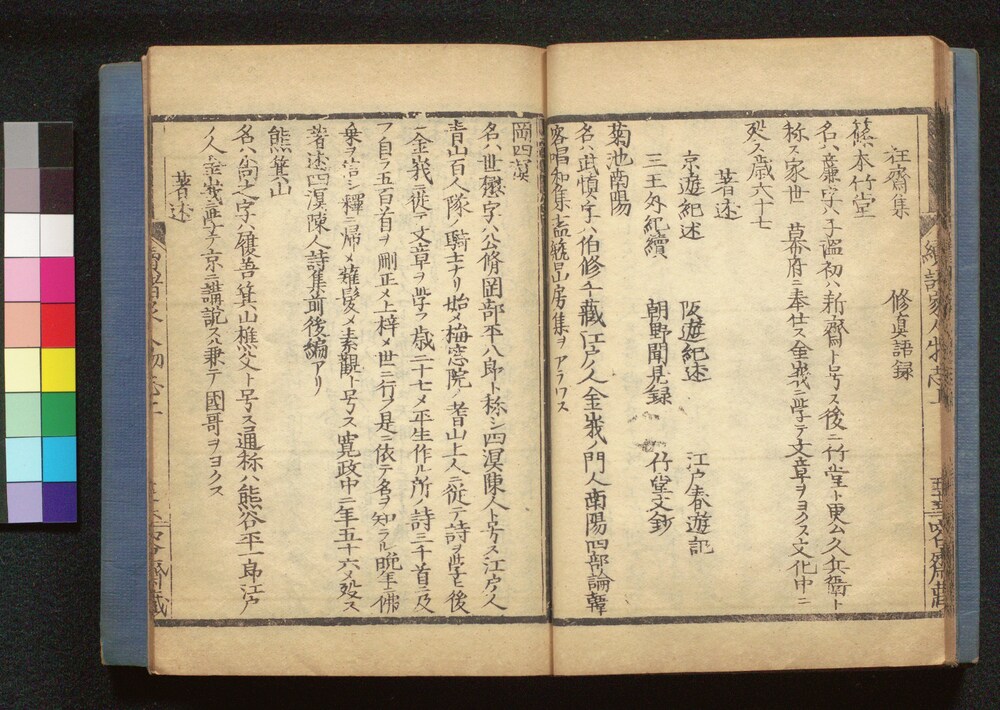 在齋集　修眞語録
篠本竹堂
名ハ廉字ハ子温初ハ新齋ト号ス後ニ竹堂ト更ム久兵衛ト
称ス家世〻幕府ニ奉仕ス金峩ニ学テ文章ヲヨクス文化中ニ
歿ス歳六十七
著述
京遊紀述　阪遊紀述　江戸春遊記
三王外紀續　朝野聞見録　竹堂文鈔
菊池南陽
名ハ武慎字ハ伯修千藏江戸ノ人金峩ノ門人南陽四部論韓
客唱和集盍簪昌房集ヲアラハス
岡四溟
名ハ世懋字ハ公脩岡部平八郎ト称シ四溟陳人ト号ス江戸ノ人
青山百人隊ノ騎士ナリ始メ梅窓院ノ耆山上人ニ從テ詩ヲ學ヒ後
金峩ニ従テ文章ヲ学フ歳二十七メ平生作ル所ノ詩三千首ニ及
フ自ラ五百首ヲ刪正メ上梓メ世ニ行フ是ニ依テ名ヲ知ラル晩年佛
乗ヲ信シ釋ニ帰メ薙髪メ素觀ト号ス寛政中ニ年五十六メ歿ス
著述四溟陳人詩集前後編アリ
熊箕山
名ハ尚之字ハ獲吾箕山樵父ト号ス通称ハ熊谷平一郎江戸
ノ人金峩ニ学テ京ニ講説ス兼テ國哥ヲヨクス
著述